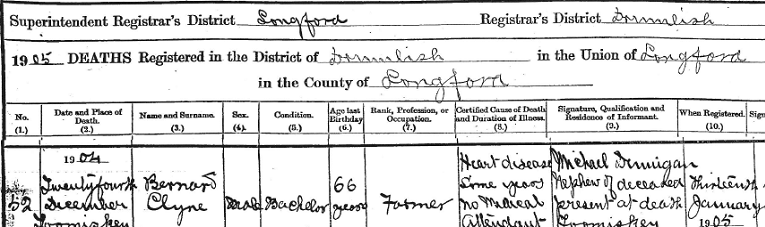 Superintendent Registrar's District Longford Registrar's District Drumlish
1905 DEATHS Registered in the District of Drumlish in the Union of Longford
in the County of Longford
No. (1.) Date and Place of Death. (2.) Name and Surname. (3.) Sex. (4.) Condition. (5.) Age last Birthday (6.) Rank, Profession, or Occupation. (7.) Certified Cause of Death and Duration of Illness. (8.) Signature, Qualification and Residence of Informant. (9.) When Registered. (10.)
52
1904
Twentyfourth
December
Toomiskey
Bernard
Clyne
Male
Bachelor
66
years
Farmer
Heart disease
Some years
No Medical
Attendant
Michael Dunnigan
Nephew of deceased
present at death
Toomiskey
Thirteenth
January
1905